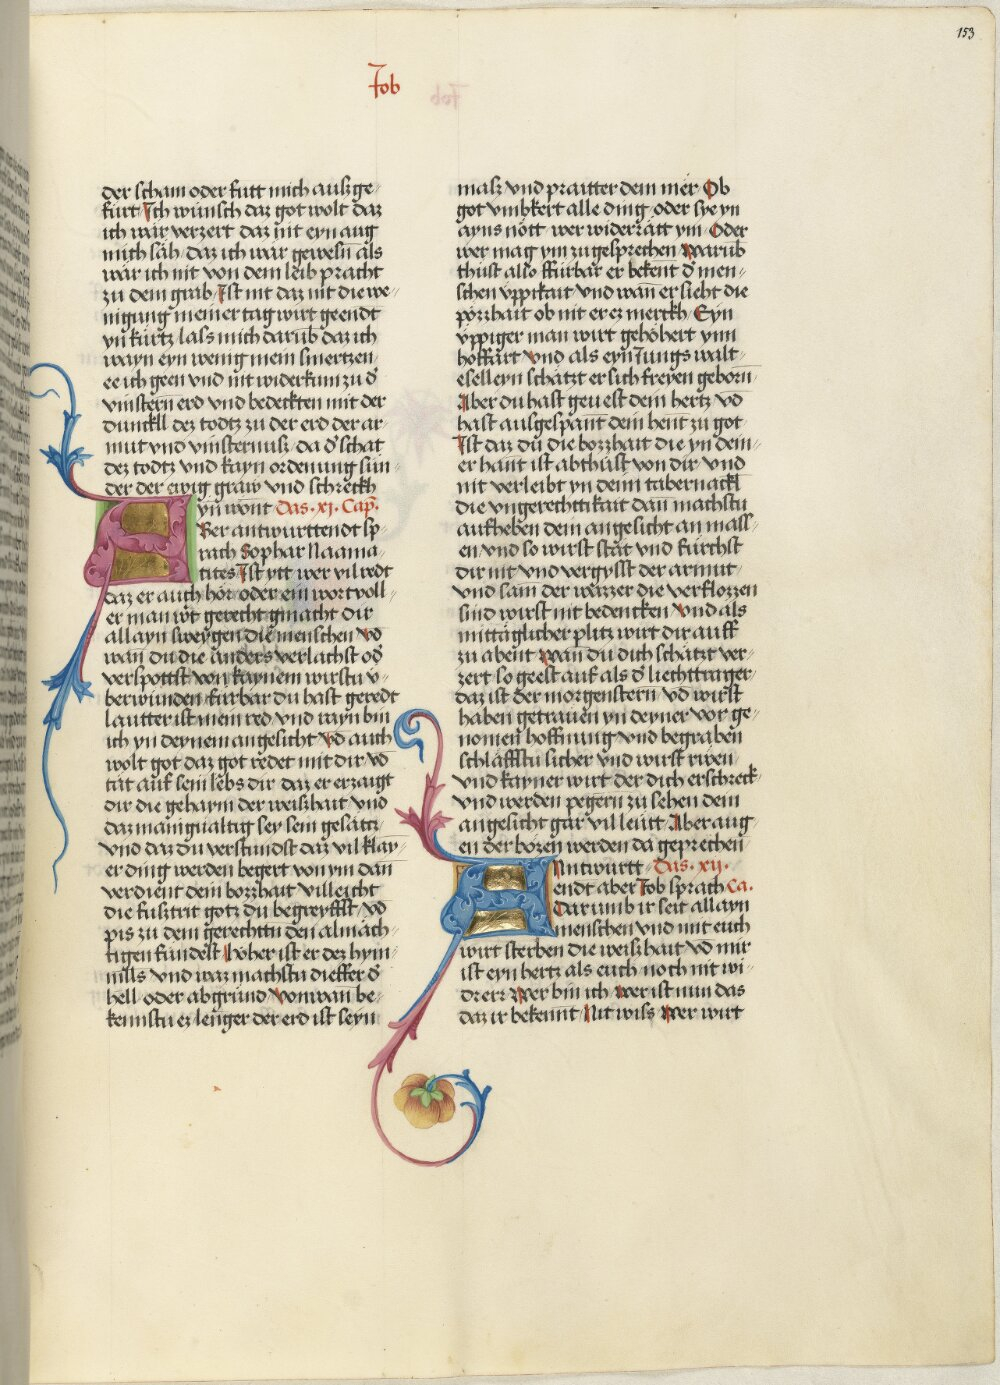 153
Job
der scham oder furt mich ausz ge-
fürt Ich wünsch daz got wolt daz
ich wär verzert daz nit eyn aug
mich säh daz ich wär gewesn als
wär ich nit von dem leib pracht
zu dem grab Ist nit daz nit die we-
nigung meiner tag wirt geendt
yn kürtz lass mich darūb daz ich
wayn eyn wenig mein smertzen
ee ich geen vnd nit widerkum zu d̄
vinstern erd vnd bedeckten mit der
dunckll dez todtz zu der erd der ar-
mut vnd vinsternusz da d̄ schat
dez todtz vnd kayn ordenung sun-
der der ewig graw vnd schreckh
yn wont Das .xi. Cap.
Aber antwurttendt sp-
rach Sophar Naama-
tites Ist ytt wer vil redt
daz er auch hör oder ein wort voll-
er man wirt gerecht gmacht dir
allayn sweygen die menschen vn̄
wan du die anders verlachst od̄
verspottst von kaynem wirstu v-
berwunden fürbar du hast geredt
lautter ist mein red vnd rayn bin
ich yn deynem angesicht Vn̄ auch
wolt got daz got redet mit dir vn̄
tät auf sein lebs dir daz er erzaigt
dir die gehaym der weiszhait vnd
daz manigualtig sey sein gesätz
vnd daz du verstundst daz vil klay-
er ding werden begert von ym dan
verdient dein boszhait villeicht
die fusztrit gotz du begreyffst vn̄
pis zu dem gerechttn den almäch-
tigen fundest Höher ist er dez hym-
mils vnd waz machstu dieffer d̄
hell oder abgründ Von wan be-
kennstu ez lenger der erd ist seyn
masz vnd praitter dem mer Ob
got vmbkert alle ding oder sye yn
ayns nött wer widerratt ym Oder
wer mag ym zu gesprechen Warūb
thust also ffürbar er bekent d̄ men-
schen üppikait vnd wan er sieht die
pözhait ob nit er ez merckh Eyn
üppiger man wirt gehöhert ynn
hoffart Vnd als eyn Jungs walt-
esellеyn schätzt er sich freyen geborn
Aber du hast geuest dein hertz vn̄
hast ausgespant dein hent zu got
Ist daz du die boszhait die yn dein-
er hant ist abthust von dir vnd
nit verleibt yn deim tabernackl
die vngerechttikait dan machstu
aufheben dein angesicht an mass-
en vnd so wirst stät vnd fürchst
dir nit vnd vergysst der armut
vnd sam der wazzer die verflozzen
sind wirst nit bedencken Vnd als
mittäglicher plitz wirt dir auff
zu abent Wan du dich schätzt ver-
zert so geest auf als d̄ liechttrager
daz ist der morgenstern vn̄ wirst
haben getrauen yn deyner vor ge-
nomen hoffnung vnd begraben
schläffstu sicher vnd wirst rwen
vnd kayner wirt der dich erschreck-
vnd werden pegern zu sehen dein
angesicht gar vil leutt Aber aug-
en der bözen werden da geprechen
Antwurtt- Das .xii.
endt aber Job sprach Ca.
Darumb ir seit allayn
menschen vnd mit euch
wirt sterben die weiszhait vn̄ mir
ist eyn hertz als euch noch nit wi-
drerr Wer bin ich Wer ist nun das
daz ir bekennt Nit wiss Wer wirt